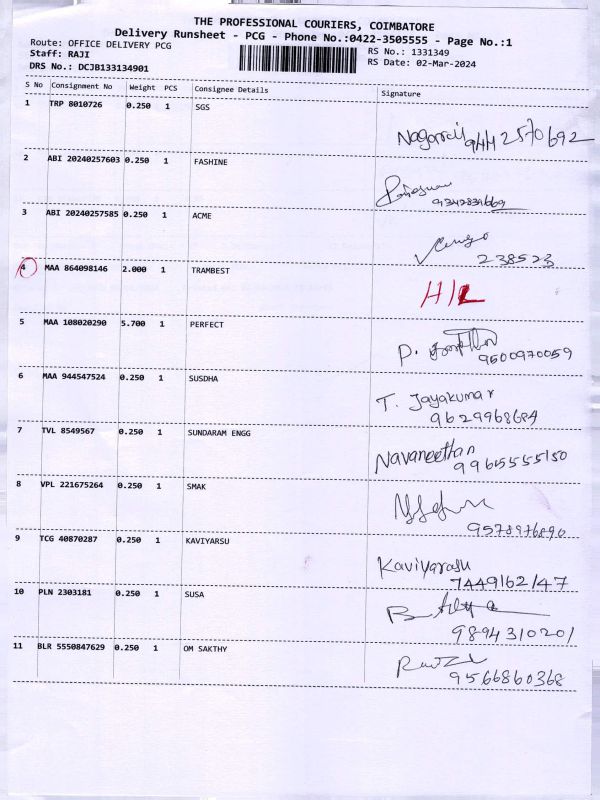 THE PROFESSIONAL COURIERS, COIMBATORE
Delivery Runsheet - PCG - Phone No.:0422-3505555 - Page No.:1
Route: OFFICE DELIVERY PCG RS No.: 1331349
Staff: RAJI RS Date: 02-Mar-2024
DRS No.: DCJB133134901
S No Consignment No Weight PCS Consignee Details Signature
1 TRP 8010726 0.250 1 SGS
Nagarraj 9442570692
2 ABI 20240257603 0.250 1 FASHINE
9342834669
3 ABI 20240257585 0.250 1 ACME
238523
4 MAA 864098146 2.000 1 TRAMBEST
H/L
5 MAA 108020290 5.700 1 PERFECT
P.
9500970059
6 MAA 944547524 0.250 1 SUSDHA
T. Jayakumar
9629968684
7 TVL 8549567 0.250 1 SUNDARAM ENGG
Navaneethan
8 VPL 221675264 0.250 1 SMAK
9578976890
9 TCG 40870287 0.250 1 KAVIYARSU
Kaviyarasu
7449162147
10 PLN 2303181 0.250 1 SUSA
9894310201
11 BLR 5550847629 0.250 1 OM SAKTHY
9566860368